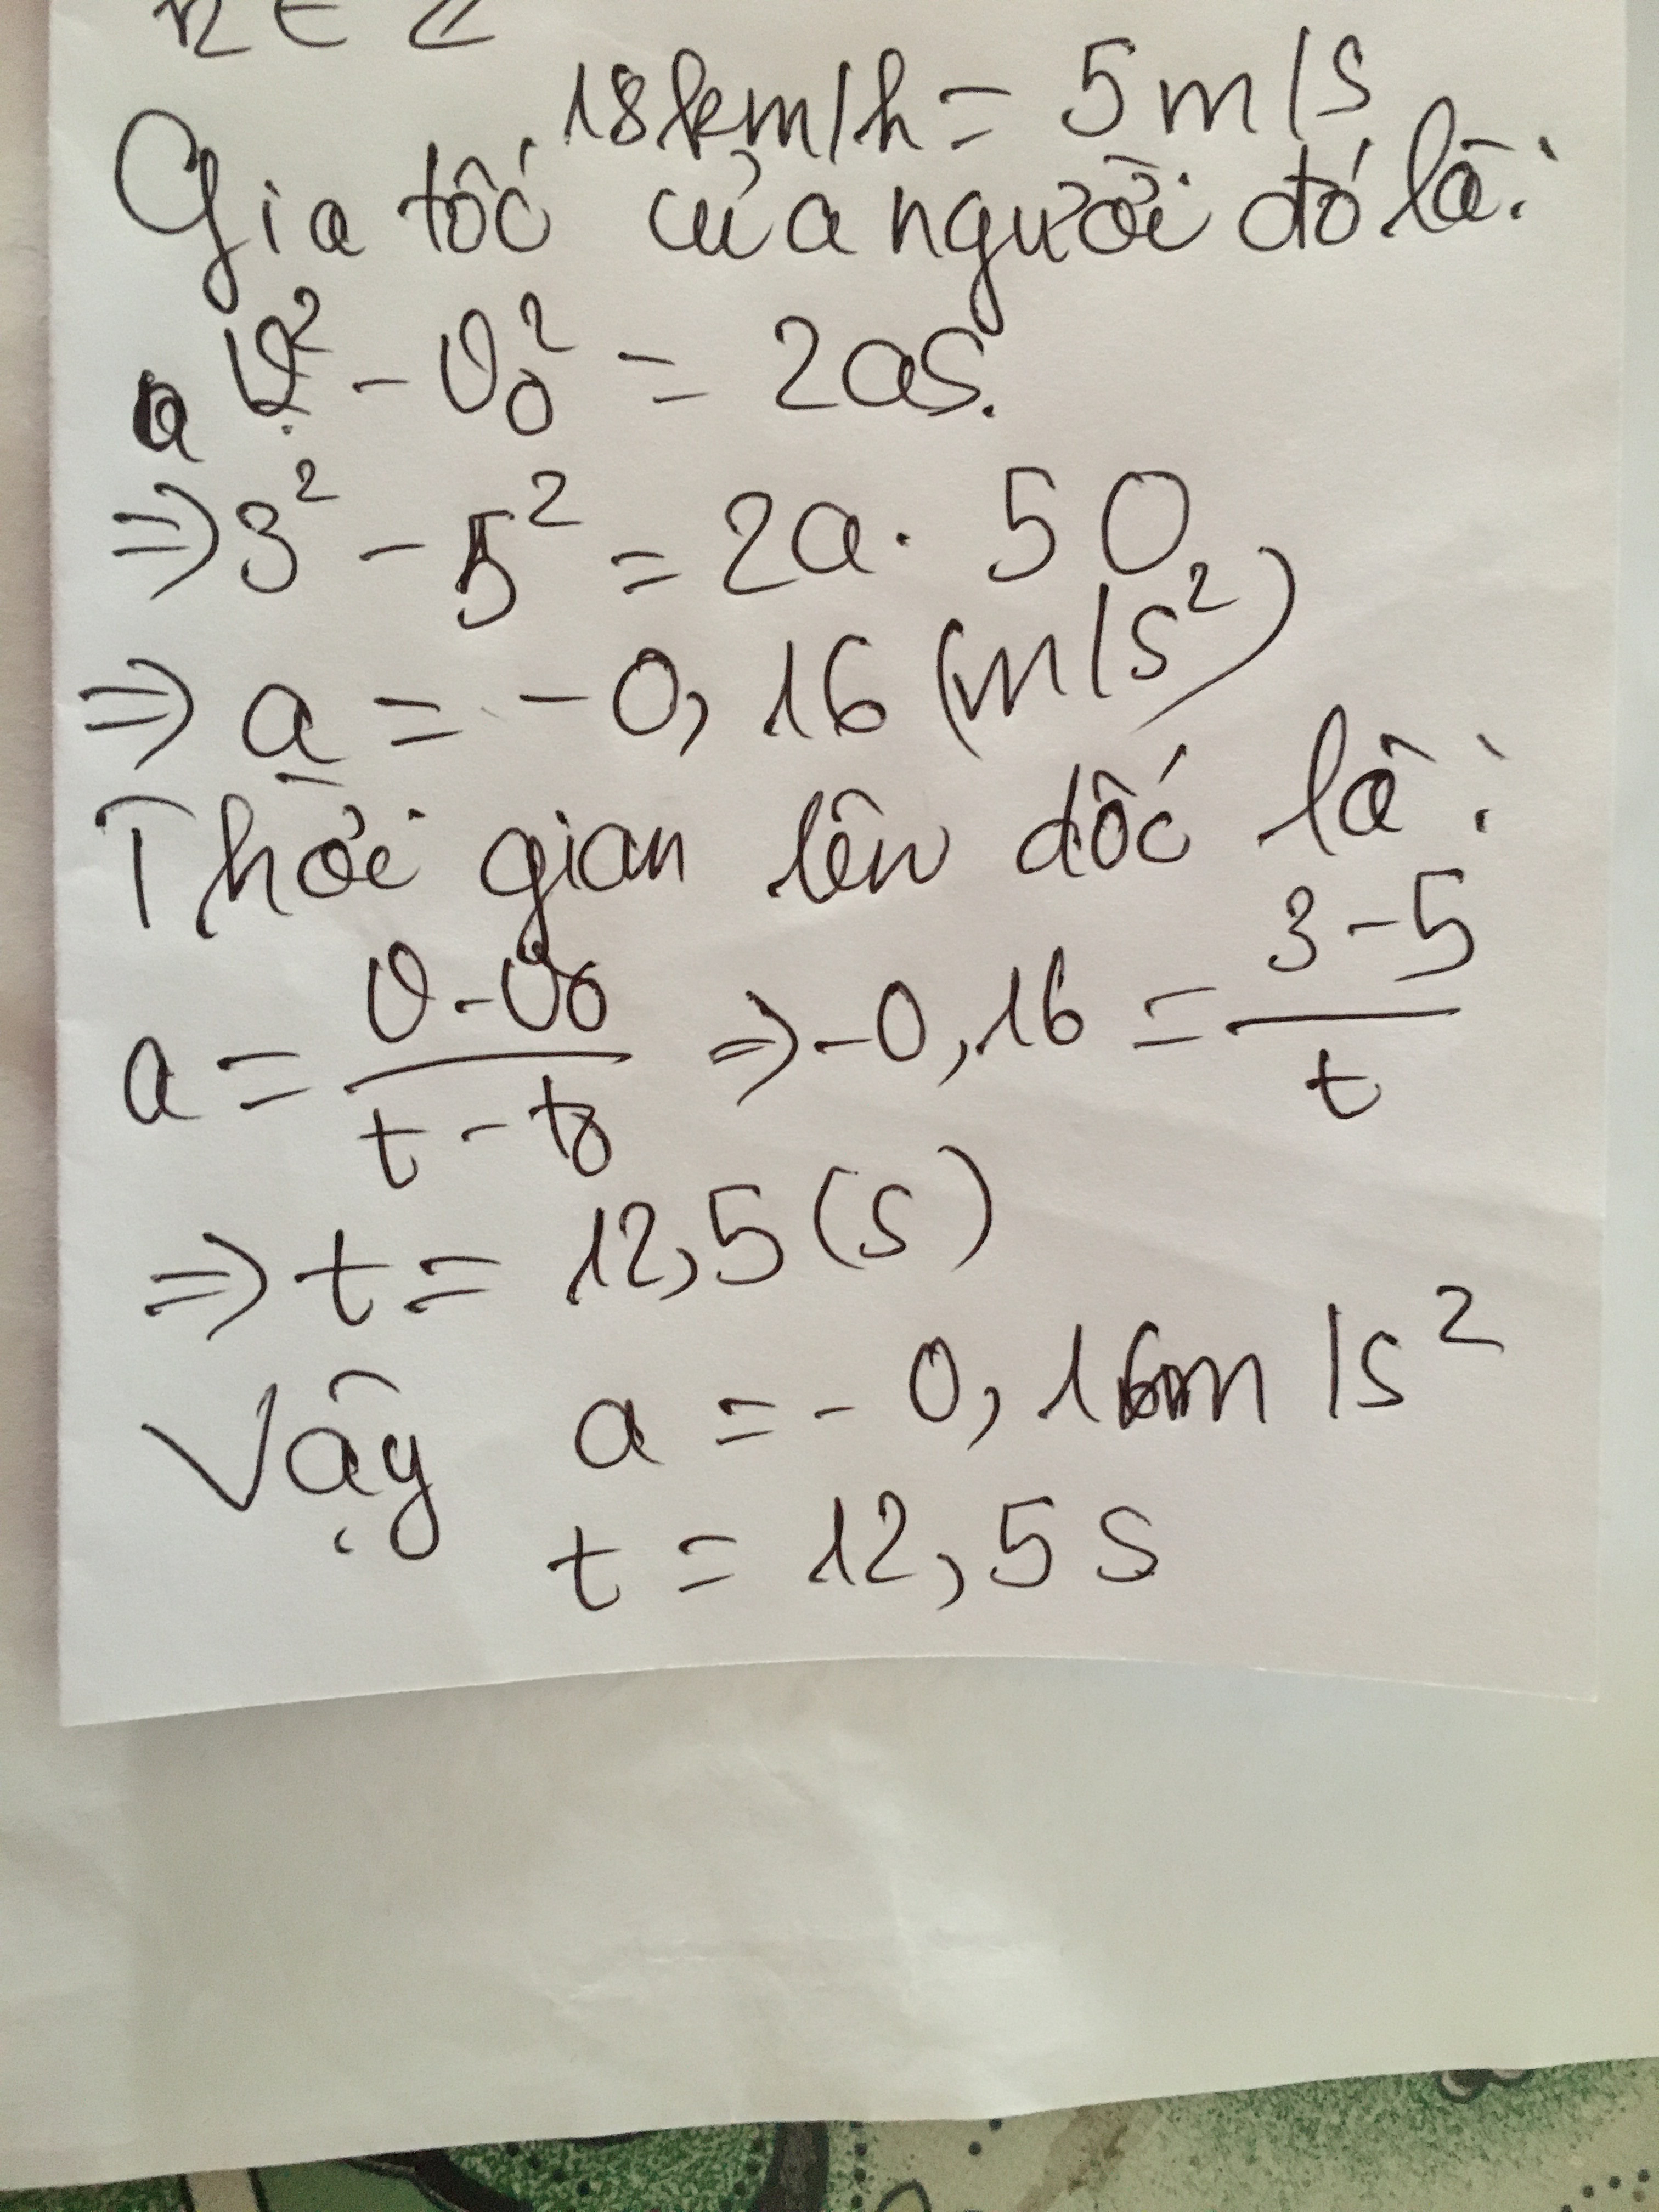 18km/h = 5m/s
Gia tốc của người đó là:
v² - v₀² = 2as.
=> 3² - 5² = 2a. 50
=> a = -0,16 (m/s²)
Thời gian lên dốc là:
a = (v - v₀)/(t - t₀) => -0,16 = (3 - 5)/t
=> t = 12,5 (s)
Vậy a = -0,16m/s²
t = 12,5s